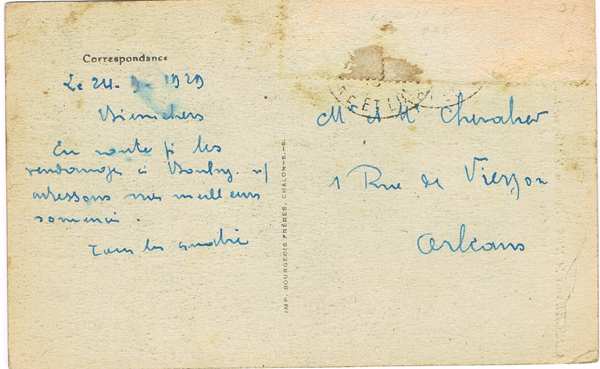 Correspondance
Le 24-9-1929
En route pr les
vendanges à
adressons nos meilleurs
souvenirs.
Tous les quatre
IMP. BOURGEOIS FRÈRES, CHALON-S.-S.
ET L
Mr et Me Chevalier
1 Rue de Vierzon
Orléans